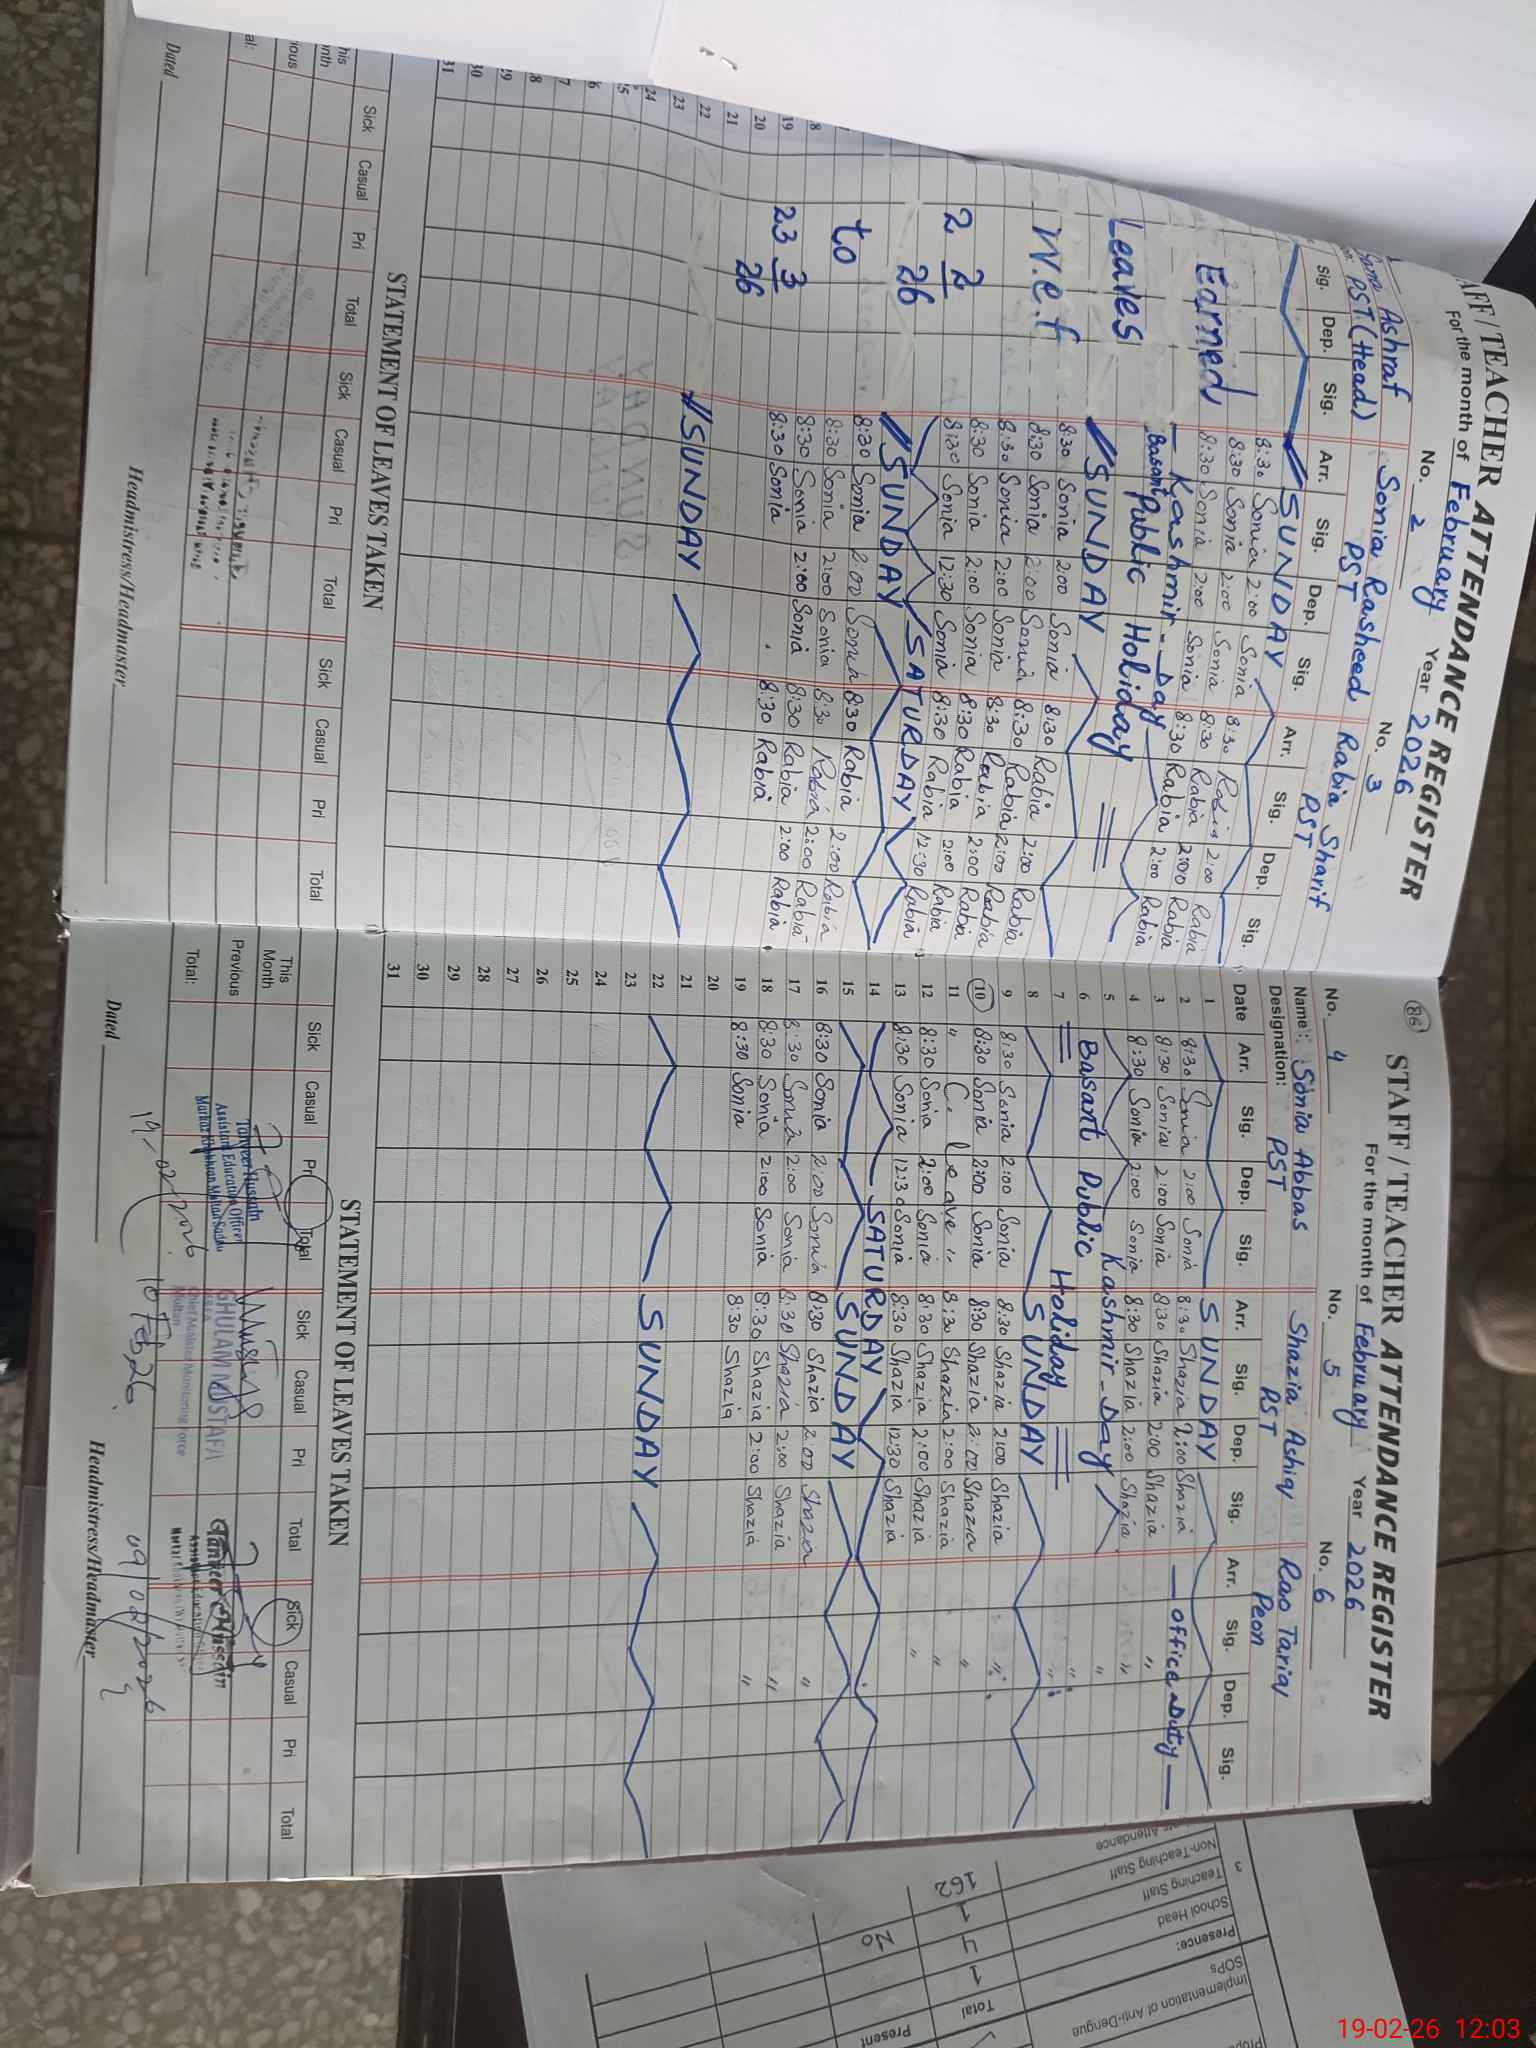 STAFF / TEACHER ATTENDANCE REGISTER
For the month of February Year 2026
No. 2 No. 3
Ashraf Sonia Rasheed Rabia Sharif
PST (Head) PST PST
Sig. Dep. Sig. Arr. Sig. Dep. Sig. Arr. Sig. Dep. Sig.
SUNDAY
8:30 Sonia 2:00 Sonia 8:30 Rabia 2:00 Rabia
8:30 Sonia 2:00 Sonia 8:30 Rabia 2:00 Rabia
8:30 Sonia 2:00 Sonia 8:30 Rabia 2:00 Rabia
Kashmir-Day
Basant Public Holiday
SUNDAY
8:30 Sonia 2:00 Sonia 8:30 Rabia 2:00 Rabia
8:30 Sonia 2:00 Sonia 8:30 Rabia 2:00 Rabia
8:30 Sonia 2:00 Sonia 8:30 Rabia 2:00 Rabia
8:30 Sonia 2:00 Sonia 8:30 Rabia 2:00 Rabia
8:30 Sonia 12:30 Sonia 8:30 Rabia 12:30 Rabia
SATURDAY
SUNDAY
8:30 Sonia 2:00 Sonia 8:30 Rabia 2:00 Rabia
8:30 Sonia 2:00 Sonia 8:30 Rabia 2:00 Rabia
8:30 Sonia 2:00 Sonia 8:30 Rabia 2:00 Rabia
8:30 Sonia 8:30 Rabia
SUNDAY
Earned
Leaves
W.e.f
2 2/26
to
23 3/26
STATEMENT OF LEAVES TAKEN
Sick Casual Pri Total Sick Casual Pri Total Sick Casual Pri Total
Dated
Headmistress/Headmaster
86
STAFF / TEACHER ATTENDANCE REGISTER
For the month of February Year 2026
No. 4 No. 5 No. 6
Name: Sonia Abbas Shazia Ashiq Rao Tariq
Designation: PST PST Peon
Date Arr. Sig. Dep. Sig. Arr. Sig. Dep. Sig. Arr. Sig. Dep. Sig.
1 SUNDAY
2 8:30 Sonia 2:00 Sonia 8:30 Shazia 2:00 Shazia office Duty
3 8:30 Sonia 2:00 Sonia 8:30 Shazia 2:00 Shazia "
4 8:30 Sonia 2:00 Sonia 8:30 Shazia 2:00 Shazia "
5 Kashmir-Day "
6 Basant Public Holiday "
7 "
8 SUNDAY
9 8:30 Sonia 2:00 Sonia 8:30 Shazia 2:00 Shazia "
10 8:30 Sonia 2:00 Sonia 8:30 Shazia 2:00 Shazia "
11 " C. leave " 8:30 Shazia 2:00 Shazia "
12 8:30 Sonia 2:00 Sonia 8:30 Shazia 2:00 Shazia "
13 8:30 Sonia 12:30 Sonia 8:30 Shazia 12:30 Shazia
14 SATURDAY
15 SUNDAY
16 8:30 Sonia 2:00 Sonia 8:30 Shazia 2:00 Shazia "
17 8:30 Sonia 2:00 Sonia 8:30 Shazia 2:00 Shazia "
18 8:30 Sonia 2:00 Sonia 8:30 Shazia 2:00 Shazia "
19 8:30 Sonia 8:30 Shazia
20
21
22 SUNDAY
23
24
25
26
27
28
29
30
31
STATEMENT OF LEAVES TAKEN
Sick Casual Pri Total Sick Casual Pri Total Sick Casual Pri Total
This Month
Previous
Total:
Tanveer Hussain
Assistant Education Officer
19-02-2026
GHULAM MUSTAFA
Chief Minister Monitoring Force
Multan
10 Feb 26
Tanveer Hussain
09/02/2026
Dated
Headmistress/Headmaster
Implementation of Anti-Dengue
SOPs
Presence:
School Head
Teaching Staff
Non-Teaching Staff
Attendance
Total
Present
1
162
3
19-02-26 12:03